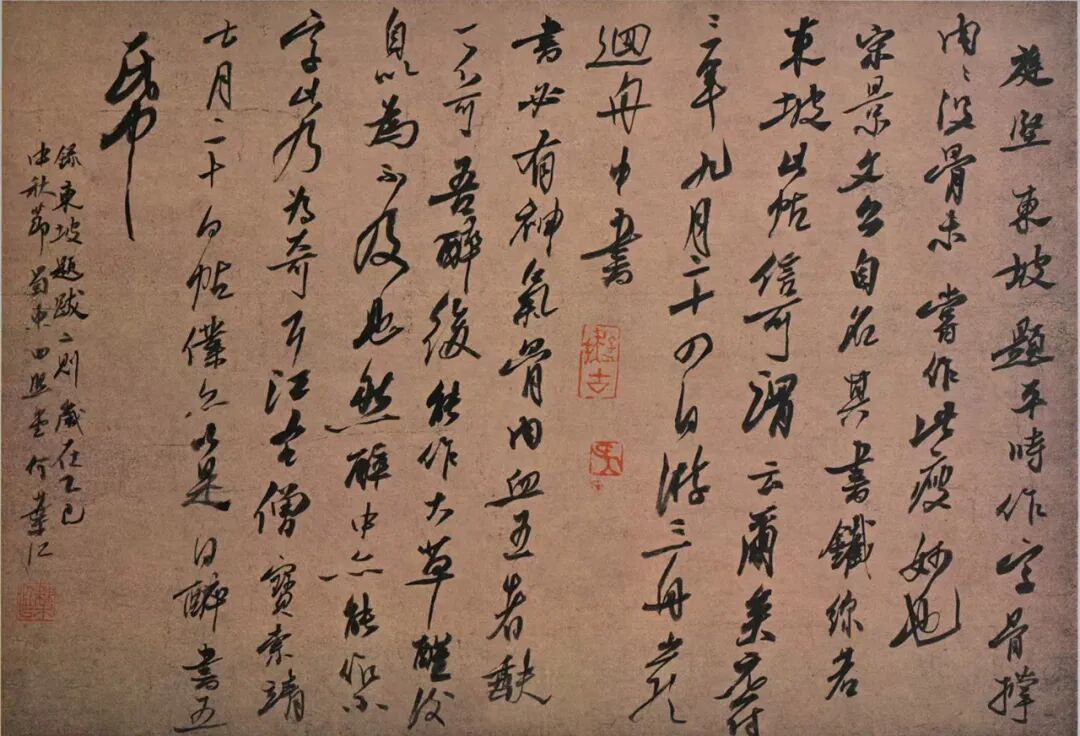 庭堅東坡題平時作字骨撑
肉〻没骨未嘗作此瘦妙也
宋景文公自名其書鐵線若
東坡此帖信可謂云爾矣元符
三年九月二十四日游三舟岩
迴舟中書
書必有神氣骨肉血五者缺
一不可吾醉後能作大草醒後
自以為不及也然醉中亦能作小
字此乃為奇耳江南僧寶索靖
七月二十日帖僕亦以是日醉書五
紙
錄東坡題跋二則歲在乙巳
中秋節蜀東田何葉江